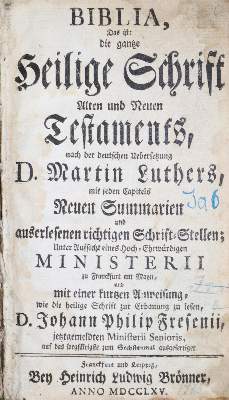 BIBLIA,
Das ist:
die gantze
Heilige Schrift
Alten und Neuen
Testaments,
nach der deutschen Uebersetzung
D. Martin Luthers,
mit jeden Capitels
Neuen Summarien
und
auserlesenen richtigen Schrift-Stellen;
Unter Aufsicht eines Hoch-Ehrwürdigen
MINISTERII
zu Franckfurt am Mayn,
und
mit einer kurtzen Anweisung,
wie die heilige Schrift zur Erbauung zu lesen,
D. Johann Philip Fresenii,
jetztgemeldten Ministerii Senioris,
auf das sorgfältigste zum Sechstenmal ausgefertiget
Franckfurt und Leipzig,
Bey Heinrich Ludwig Brönner,
ANNO MDCCLXV.